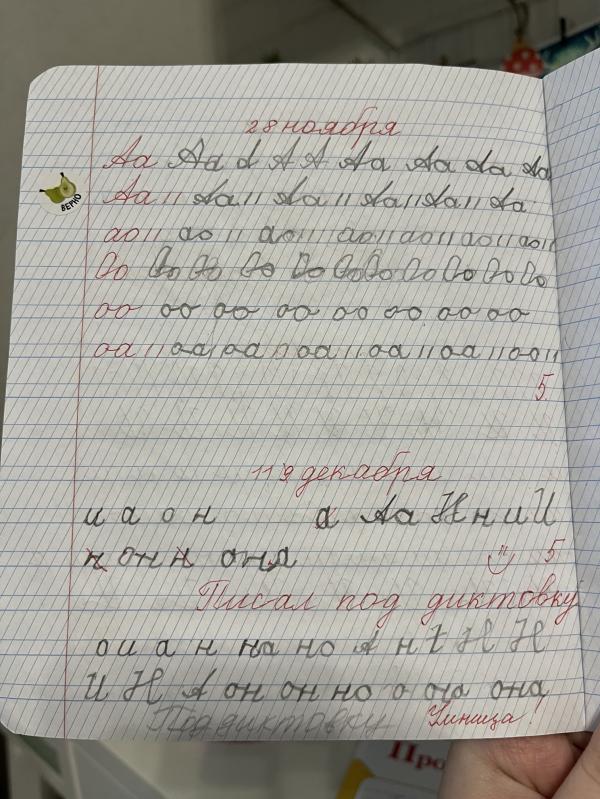 28 ноября
Аа Аа А А Аа Аа Аа Аа
ВЕРНО
Аа // Аа // Аа // Аа // Аа // Аа
ао // ао // ао // ао // ао // ао // ао //
Оо Оо Оо Оо Оо Оо Оо Оо Оо Оо Оо
оо оо оо оо оо оо оо оо
оа // оа оа // оа // оа // оа // оо //
5
9 декабря
и а о н а Аа Н н и И
он н она
5
Писал под диктовку
о и а н на но А н Н Н
И Н А он он но о она
Под диктовку
Умница!
Про